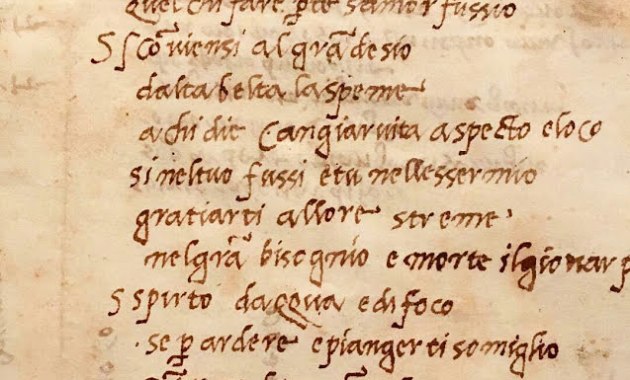 quel chi fare p̱ te s amor fussio
S sco͂viensi al gra͂ desio
dalta belta la speme
a chi die Cangiar vita aspecto e loco
si nel tuo fussi e tu nellesser mio
gratiarti allore streme
nel gra͂ bisognio e morte il giovar p
S spirto dacqua e di foco
se p̱ ardere e pianger ti somiglio